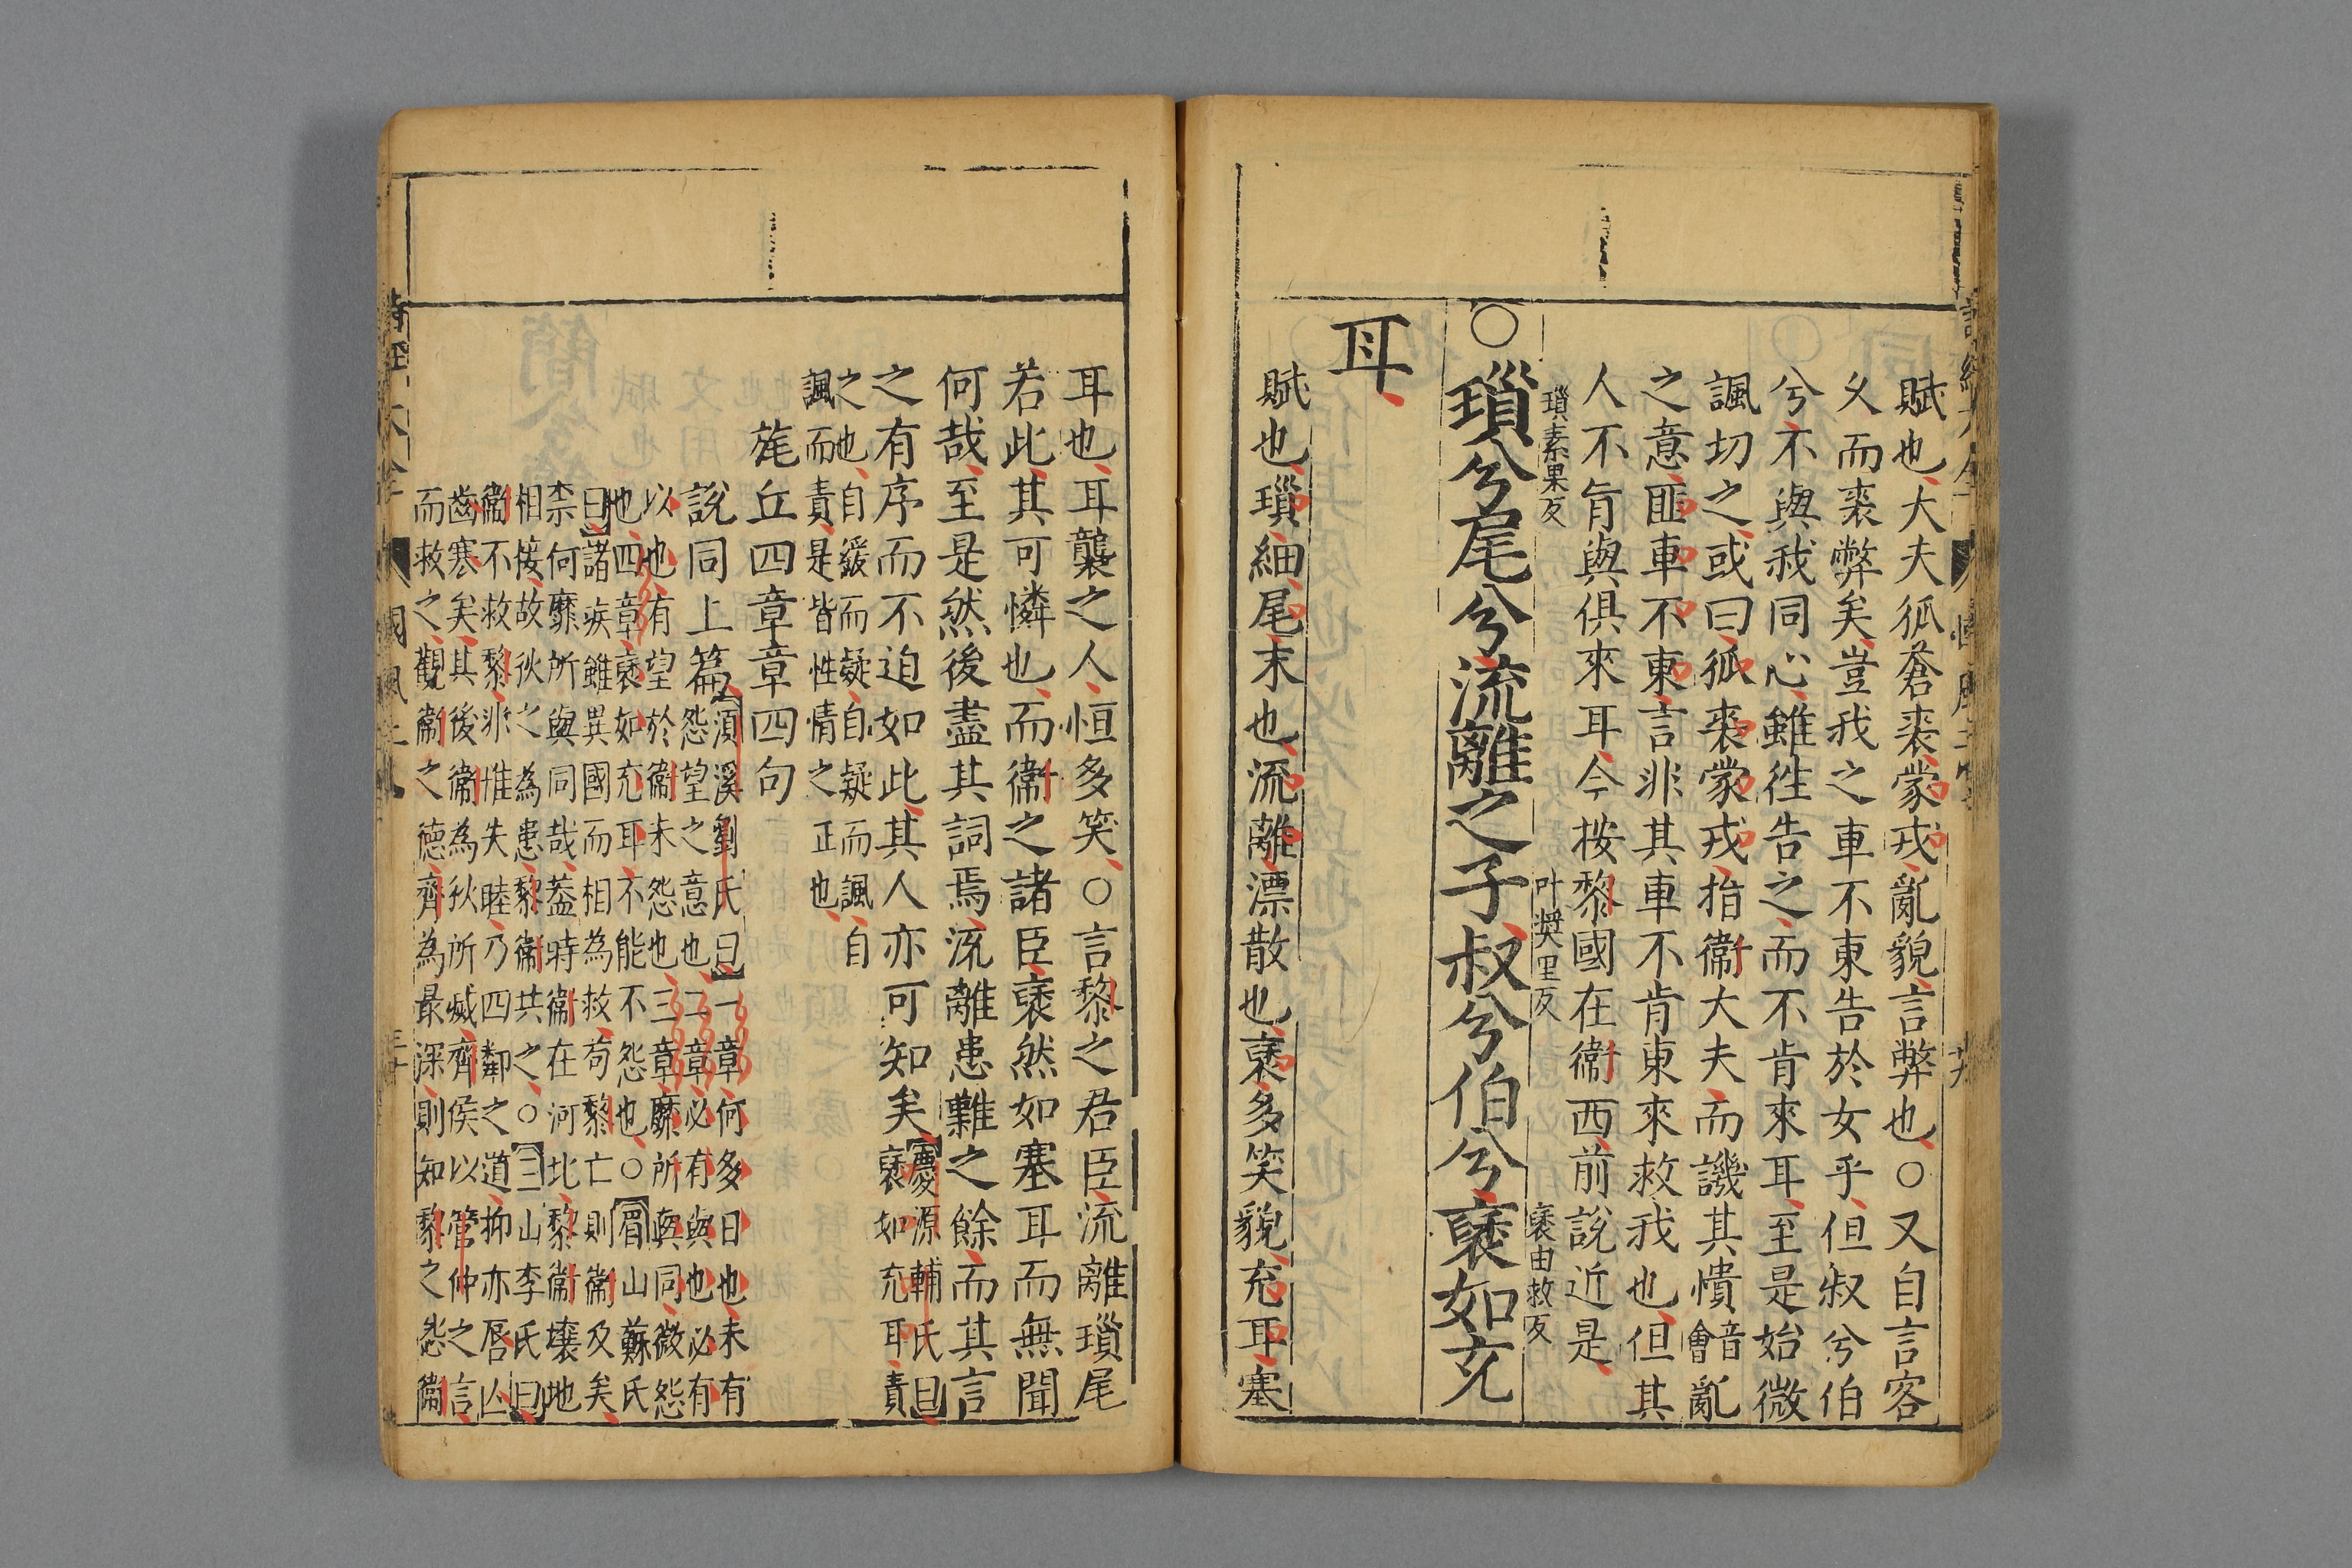 賦也大夫狐蒼裘蒙戎亂貌言弊也○又自言客
乆而裘弊矣豈我之車不東告於女乎但叔兮伯
兮不與我同心雖徃告之而不肯來耳至是始微
諷切之或曰狐裘蒙戎指衛大夫而譏其憒音會亂
之意匪車不東言非其車不肯東來救我也但其
人不肯與俱來耳今按黎國在衛西前說近是
瑣素果反 叶奬里反 褎由救反
○瑣兮尾兮流離之子叔兮伯兮褎如充
耳
賦也瑣細尾末也流離漂散也褎多笑貌充耳塞
耳也耳聾之人恒多笑○言黎之君臣流離瑣尾
若此其可憐也而衛之諸臣褎然如塞耳而無聞
何哉至是然後盡其詞焉流離患難之餘而其言
之有序而不迫如此其人亦可知矣慶源輔氏曰
褎如充耳責
之也自緩而疑自疑而諷自
諷而責是皆性情之正也
旄丘四章章四句
說同上篇須溪劉氏曰一章何多日也未有
怨望之意也二章必有與也必有
以也有望於衛未怨也三章靡所與同微怨
也四章褎如充耳不能不怨也○眉山蘇氏
曰諸疾雖異國而相為救苟黎亡則衛及矣
柰何靡所與同哉葢時衛在河北黎衛壤地
相接故狄之為患黎衛共之○三山李氏曰
衛不救黎非惟失睦乃四鄰之道抑亦唇亾
齒寒矣其後衛為狄所滅齊侯以管仲之言
而救之觀衛之德齊為最深則知黎之怨衛
國風
三十